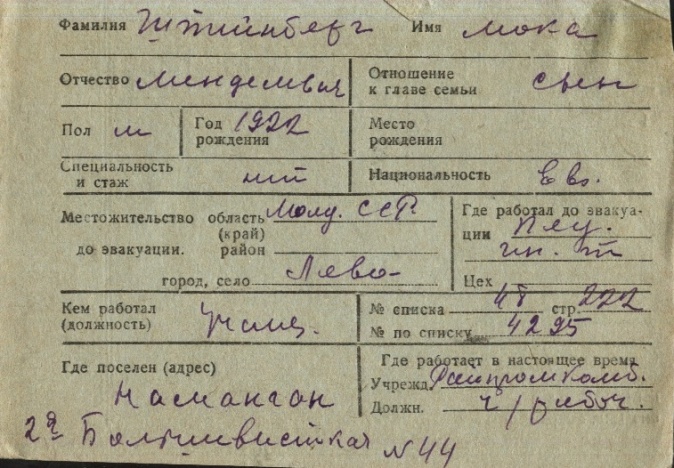 Фамилия Штийнберг Имя Мока
Отчество Менделевич Отношение к главе семьи сын
Пол м Год рождения 1922 Место рождения
Специальность и стаж нит Национальность Евр.
Местожительство до эвакуации. область (край) Молд. ССР.
район
город, село Лево-
Где работал до эвакуации Пед. ин. т
Цех
Кем работал (должность) Учащ.
№ списка 48 стр. 222
№ по списку 4295
Где поселен (адрес) Наманган
2я Большевистская N 44
Где работает в настоящее время
Учрежд. Райпромкомб.
Должн. ч/рабоч.